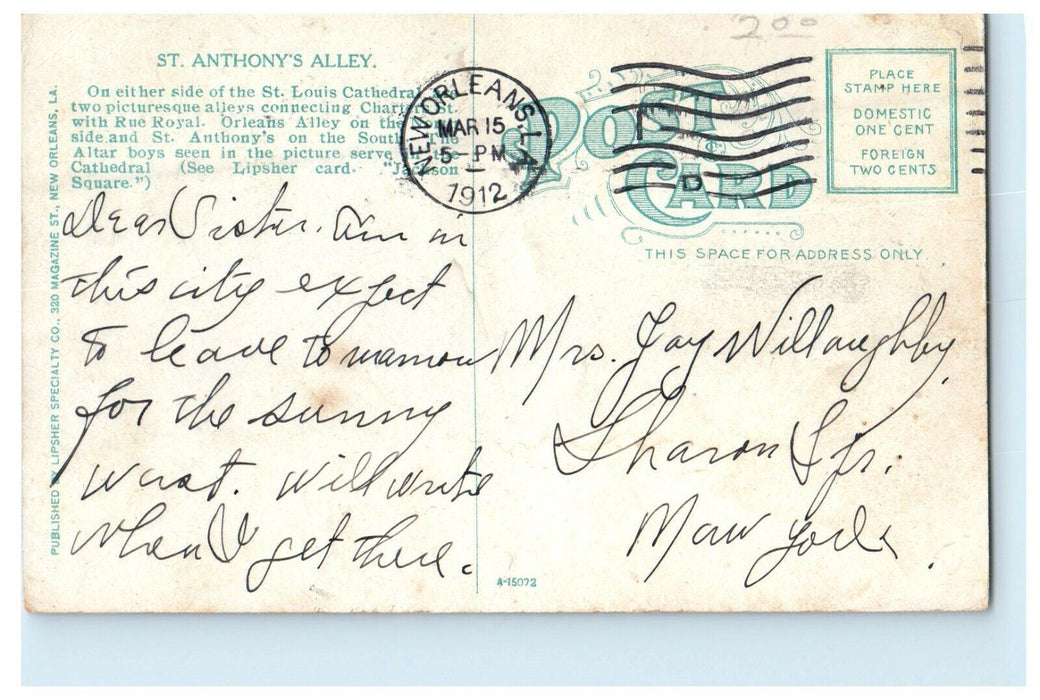 2.00
ST. ANTHONY'S ALLEY.
On either side of the St. Louis Cathedral
two picturesque alleys connecting Chart St.
with Rue Royal. Orleans Alley on the
side and St. Anthony's on the South The
Altar boys seen in the picture serve
Cathedral (See Lipsher card. "Jackson
Square.")
NEW ORLEANS, LA.
MAR 15
5 - PM
1912
D
POST CARD
PLACE
STAMP HERE
DOMESTIC
ONE CENT
FOREIGN
TWO CENTS
THIS SPACE FOR ADDRESS ONLY.
PUBLISHED BY LIPSHER SPECIALTY CO., 320 MAGAZINE ST., NEW ORLEANS, LA.
Dear Sister. Am in
this city expect
to leave tomorrow
for the sunny
west. Will write
when I get there.
Mrs. Jay Willoughby
Sharon Sps.
New York.
A-15072